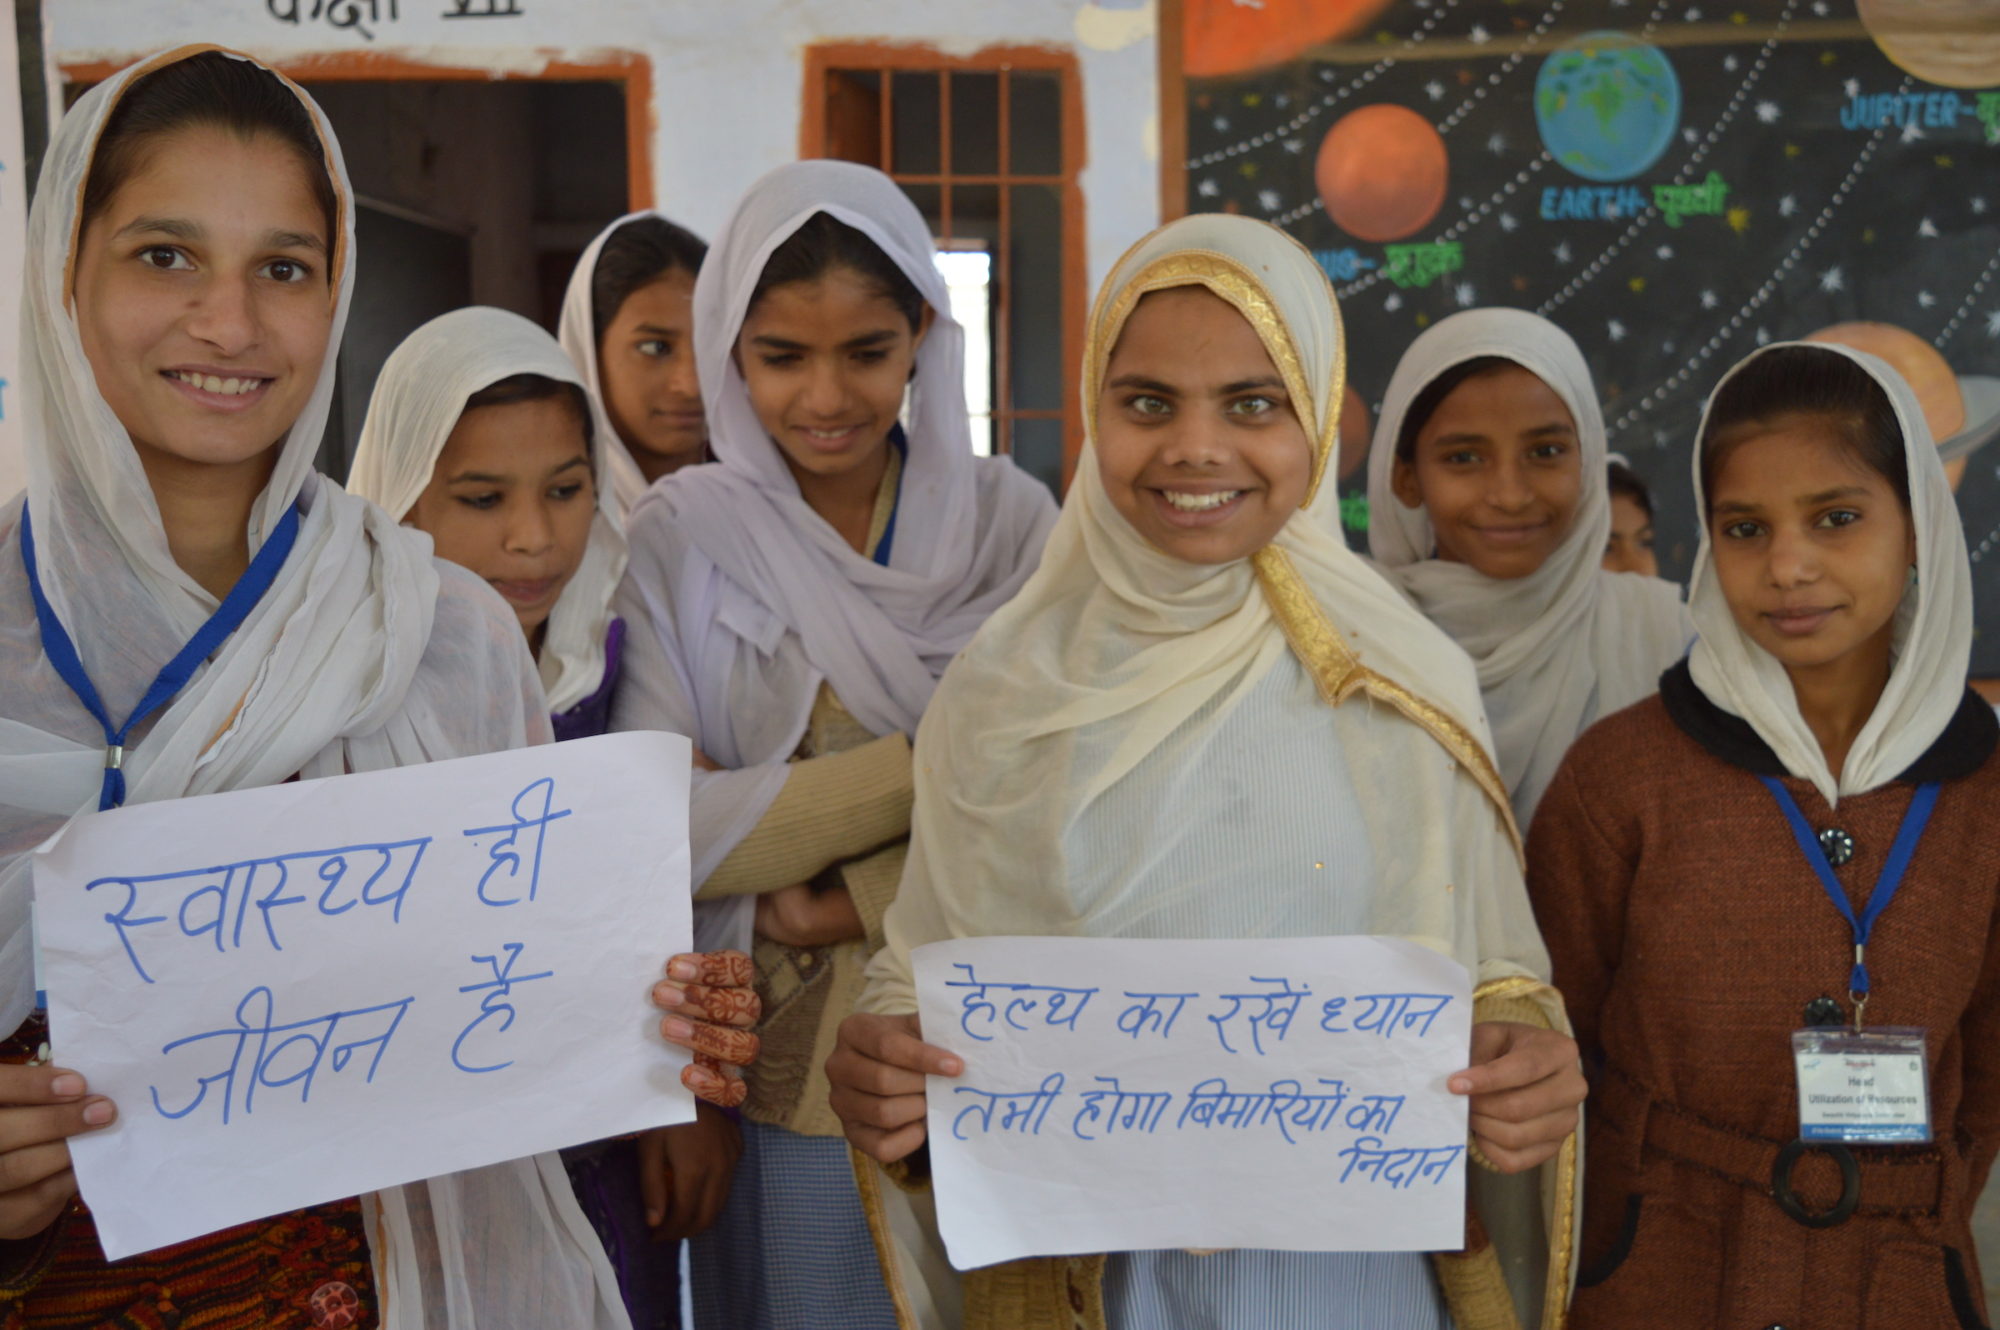 कक्षा VIII
JUPITER-
EARTH- पृथ्वी
शुक्र
स्वास्थ्य ही
जीवन है
हेल्थ का रखें ध्यान
तभी होगा बिमारियों का
निदान
Head
Utilization of Resources